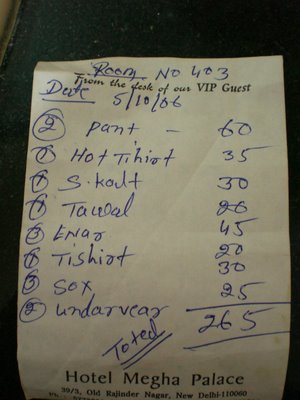 Room No 403
From the desk of our VIP Guest
Date 5/10/06
② Pant — 60
① Hot Tihirt 35
① S. kalt 30
① Tawal 20
③ Enar 45
① Tishirt 20
③ Sox 30
② underwear 25
Toted 265
Hotel Megha Palace
39/3, Old Rajinder Nagar, New Delhi-110060